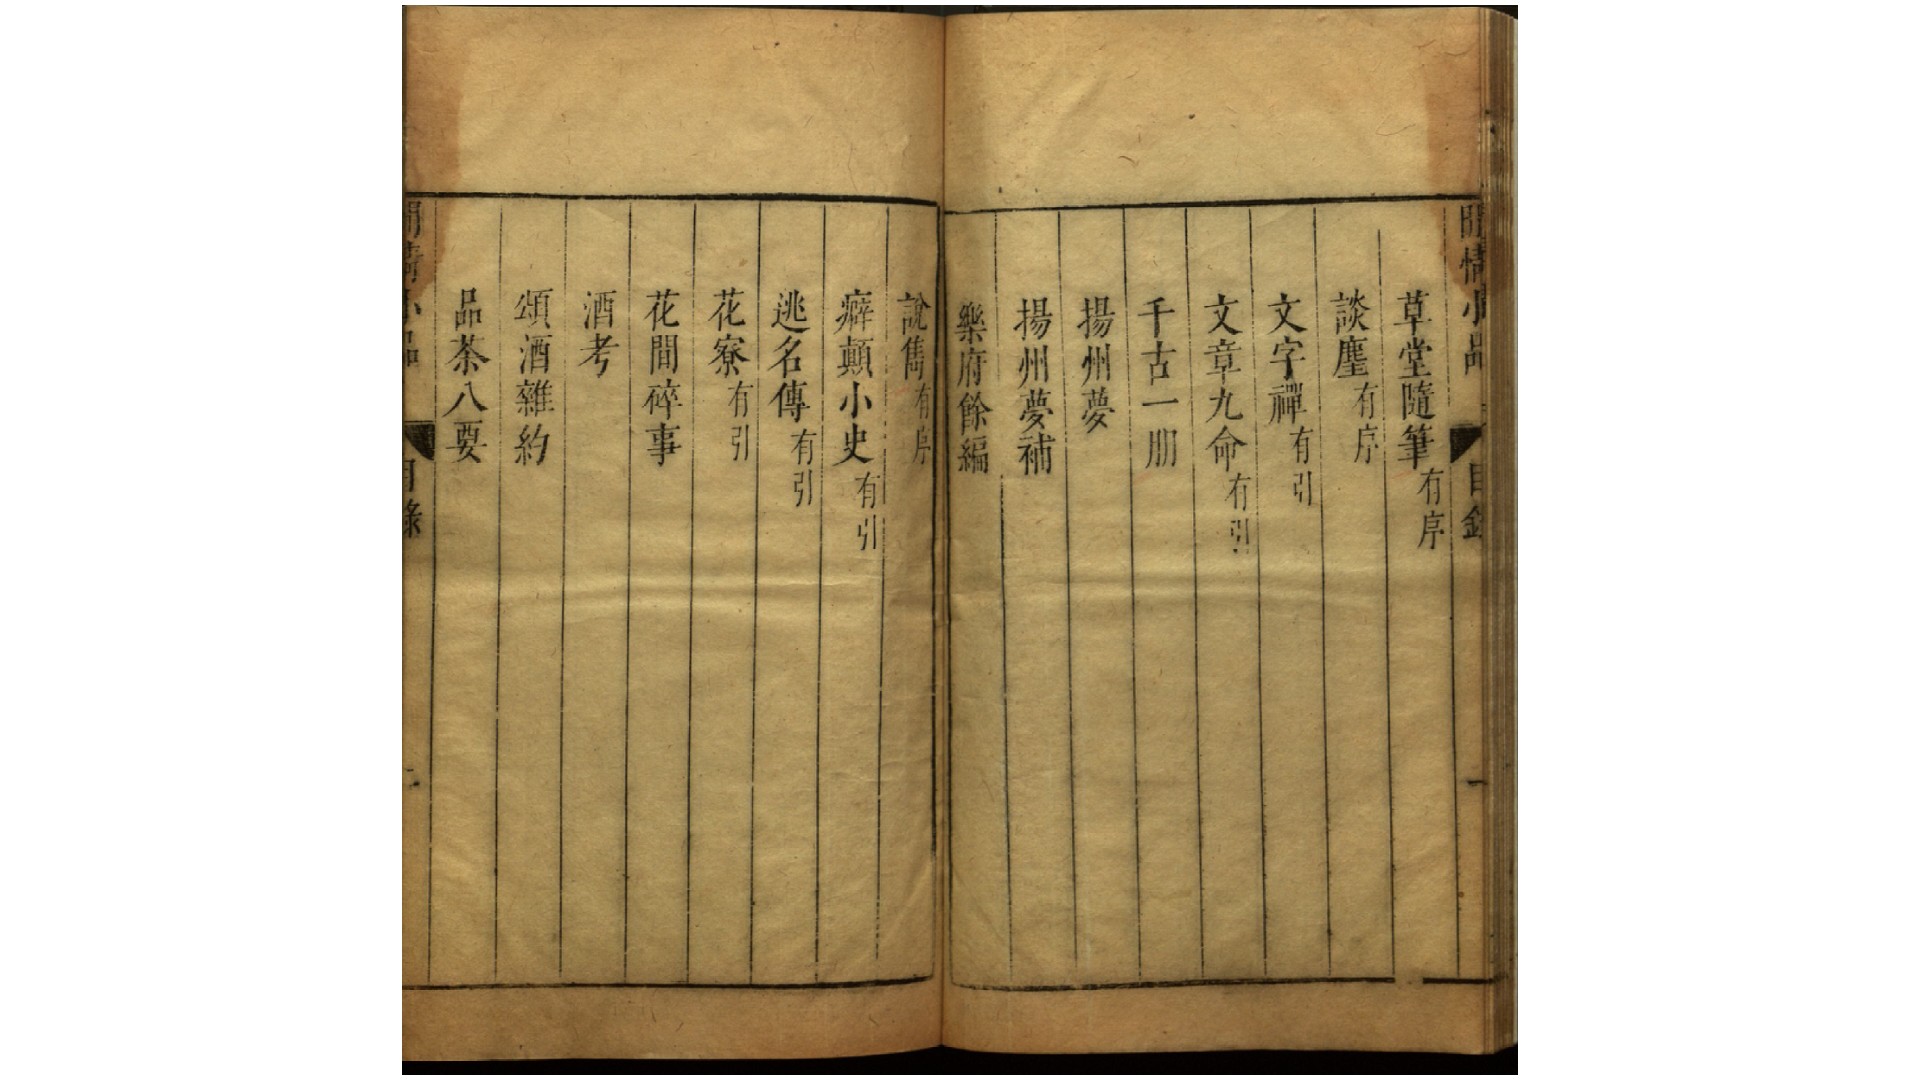 閒情小品 目錄 一
草堂隨筆有序
談麈有序
文字禪有引
文章九命有引
千古一朋
揚州夢
揚州夢補
樂府餘編
說雋有序
癖顛小史有引
逃名傳有引
花寮有引
花間碎事
酒考
頌酒雜約
品茶八要
閒情小品 目錄 二